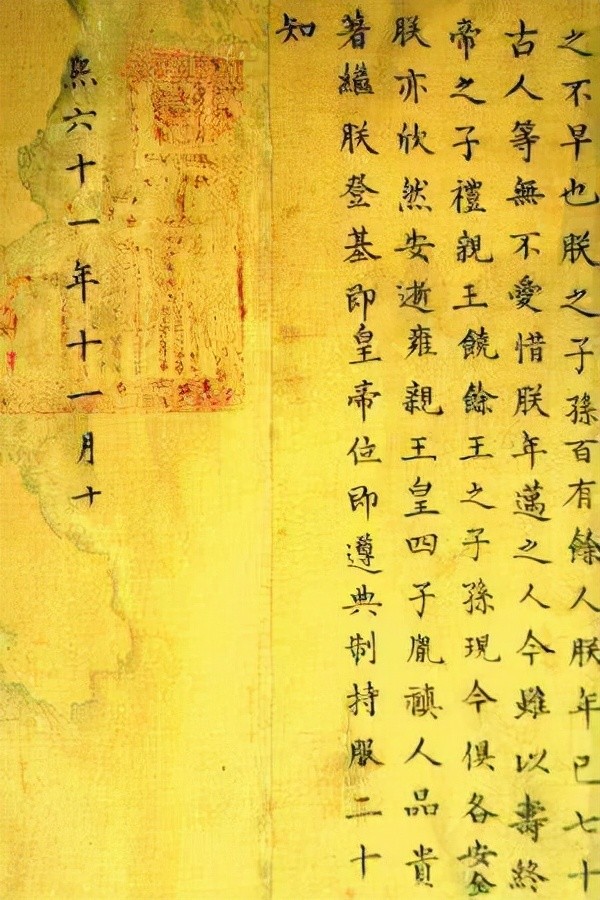 之不早也朕之子孫百有餘人朕年已七十
古人等無不愛惜朕年邁之人今雖以壽終
帝之子禮親王饒餘王之子孫現今俱各安全
朕亦欣然安逝雍親王皇四子胤禛人品貴
著繼朕登基即皇帝位即遵典制持服二十
知
熙六十一年十一月十